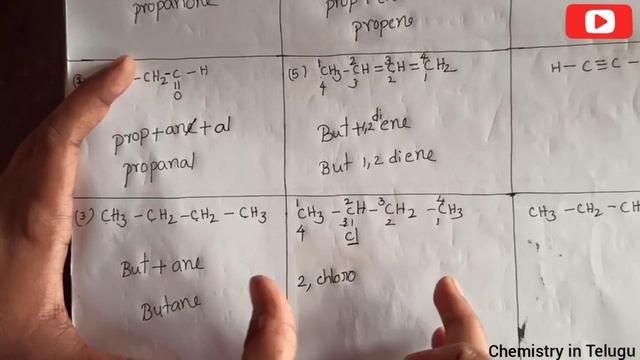 propanone
propene
-CH2-C-H
||
O
prop+ane+al
propanal
(5) CH3-CH=CH=CH2
1 2 3 4
4 3 2 1
But+1,2 diene
But 1,2 diene
H-C≡C-
(3) CH3-CH2-CH2-CH3
But+ane
Butane
1 2 3 4
CH3-CH-CH2-CH3
4 3 2 1
Cl
2, chloro
CH3-CH2-CH
Chemistry in Telugu